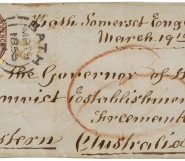 Bath Somerset Eng
March 19th
BATH
The Governor of
Convict Establishment
Freemantle
Western Australia